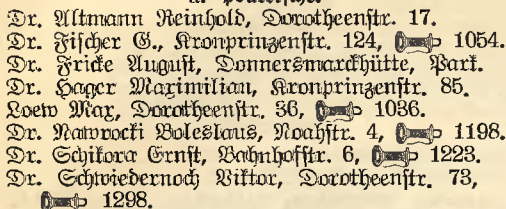 Dr. Altmann Reinhold, Dorotheenstr. 17.
Dr. Fischer G., Kronprinzenstr. 124, 1054.
Dr. Fricke August, Donnersmarckhütte, Park.
Dr. Hager Maximilian, Kronprinzenstr. 85.
Loew Max, Dorotheenstr. 36, 1036.
Dr. Nawrocki Boleslaus, Noahstr. 4, 1198.
Dr. Schikora Ernst, Bahnhofstr. 6, 1223.
Dr. Schwiedernoch Viktor, Dorotheenstr. 73,
1298.